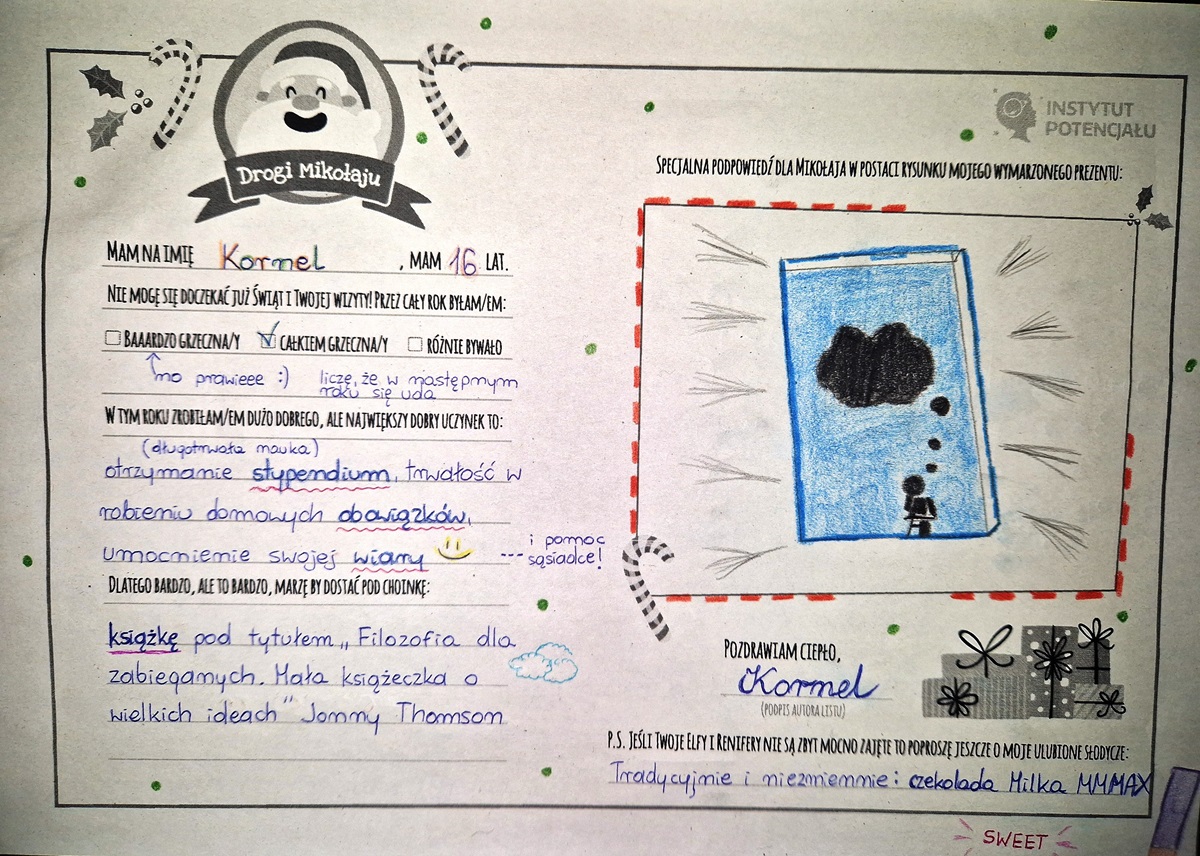 Drogi Mikołaju
INSTYTUT
POTENCJAŁU
MAM NA IMIĘ Kornel, MAM 16 LAT.
NIE MOGĘ SIĘ DOCZEKAĆ JUŻ ŚWIĄT I TWOJEJ WIZYTY! PRZEZ CAŁY ROK BYŁAM/EM:
BAAARDZO GRZECZNA/Y CAŁKIEM GRZECZNA/Y RÓŻNIE BYWAŁO
no prawieee :) liczę, że w następnym
roku się uda
W TYM ROKU ZROBIŁAM/EM DUŻO DOBREGO, ALE NAJWIĘKSZY DOBRY UCZYNEK TO:
(długotrwała nauka)
otrzymanie stypendium, trwałość w
robieniu domowych obowiązków,
umocnienie swojej wiary
--- i pomoc
sąsiadce!
DLATEGO BARDZO, ALE TO BARDZO, MARZĘ BY DOSTAĆ POD CHOINKĘ:
książkę pod tytułem „Filozofia dla
zabieganych. Mała książeczka o
wielkich ideach" Jonny Thomson
SPECJALNA PODPOWIEDŹ DLA MIKOŁAJA W POSTACI RYSUNKU MOJEGO WYMARZONEGO PREZENTU:
POZDRAWIAM CIEPŁO,
Kornel
(PODPIS AUTORA LISTU)
P.S. JEŚLI TWOJE ELFY I RENIFERY NIE SĄ ZBYT MOCNO ZAJĘTE TO POPROSZĘ JESZCZE O MOJE ULUBIONE SŁODYCZE:
Tradycyjnie i niezmiennie: czekolada Milka MMMAX
SWEET